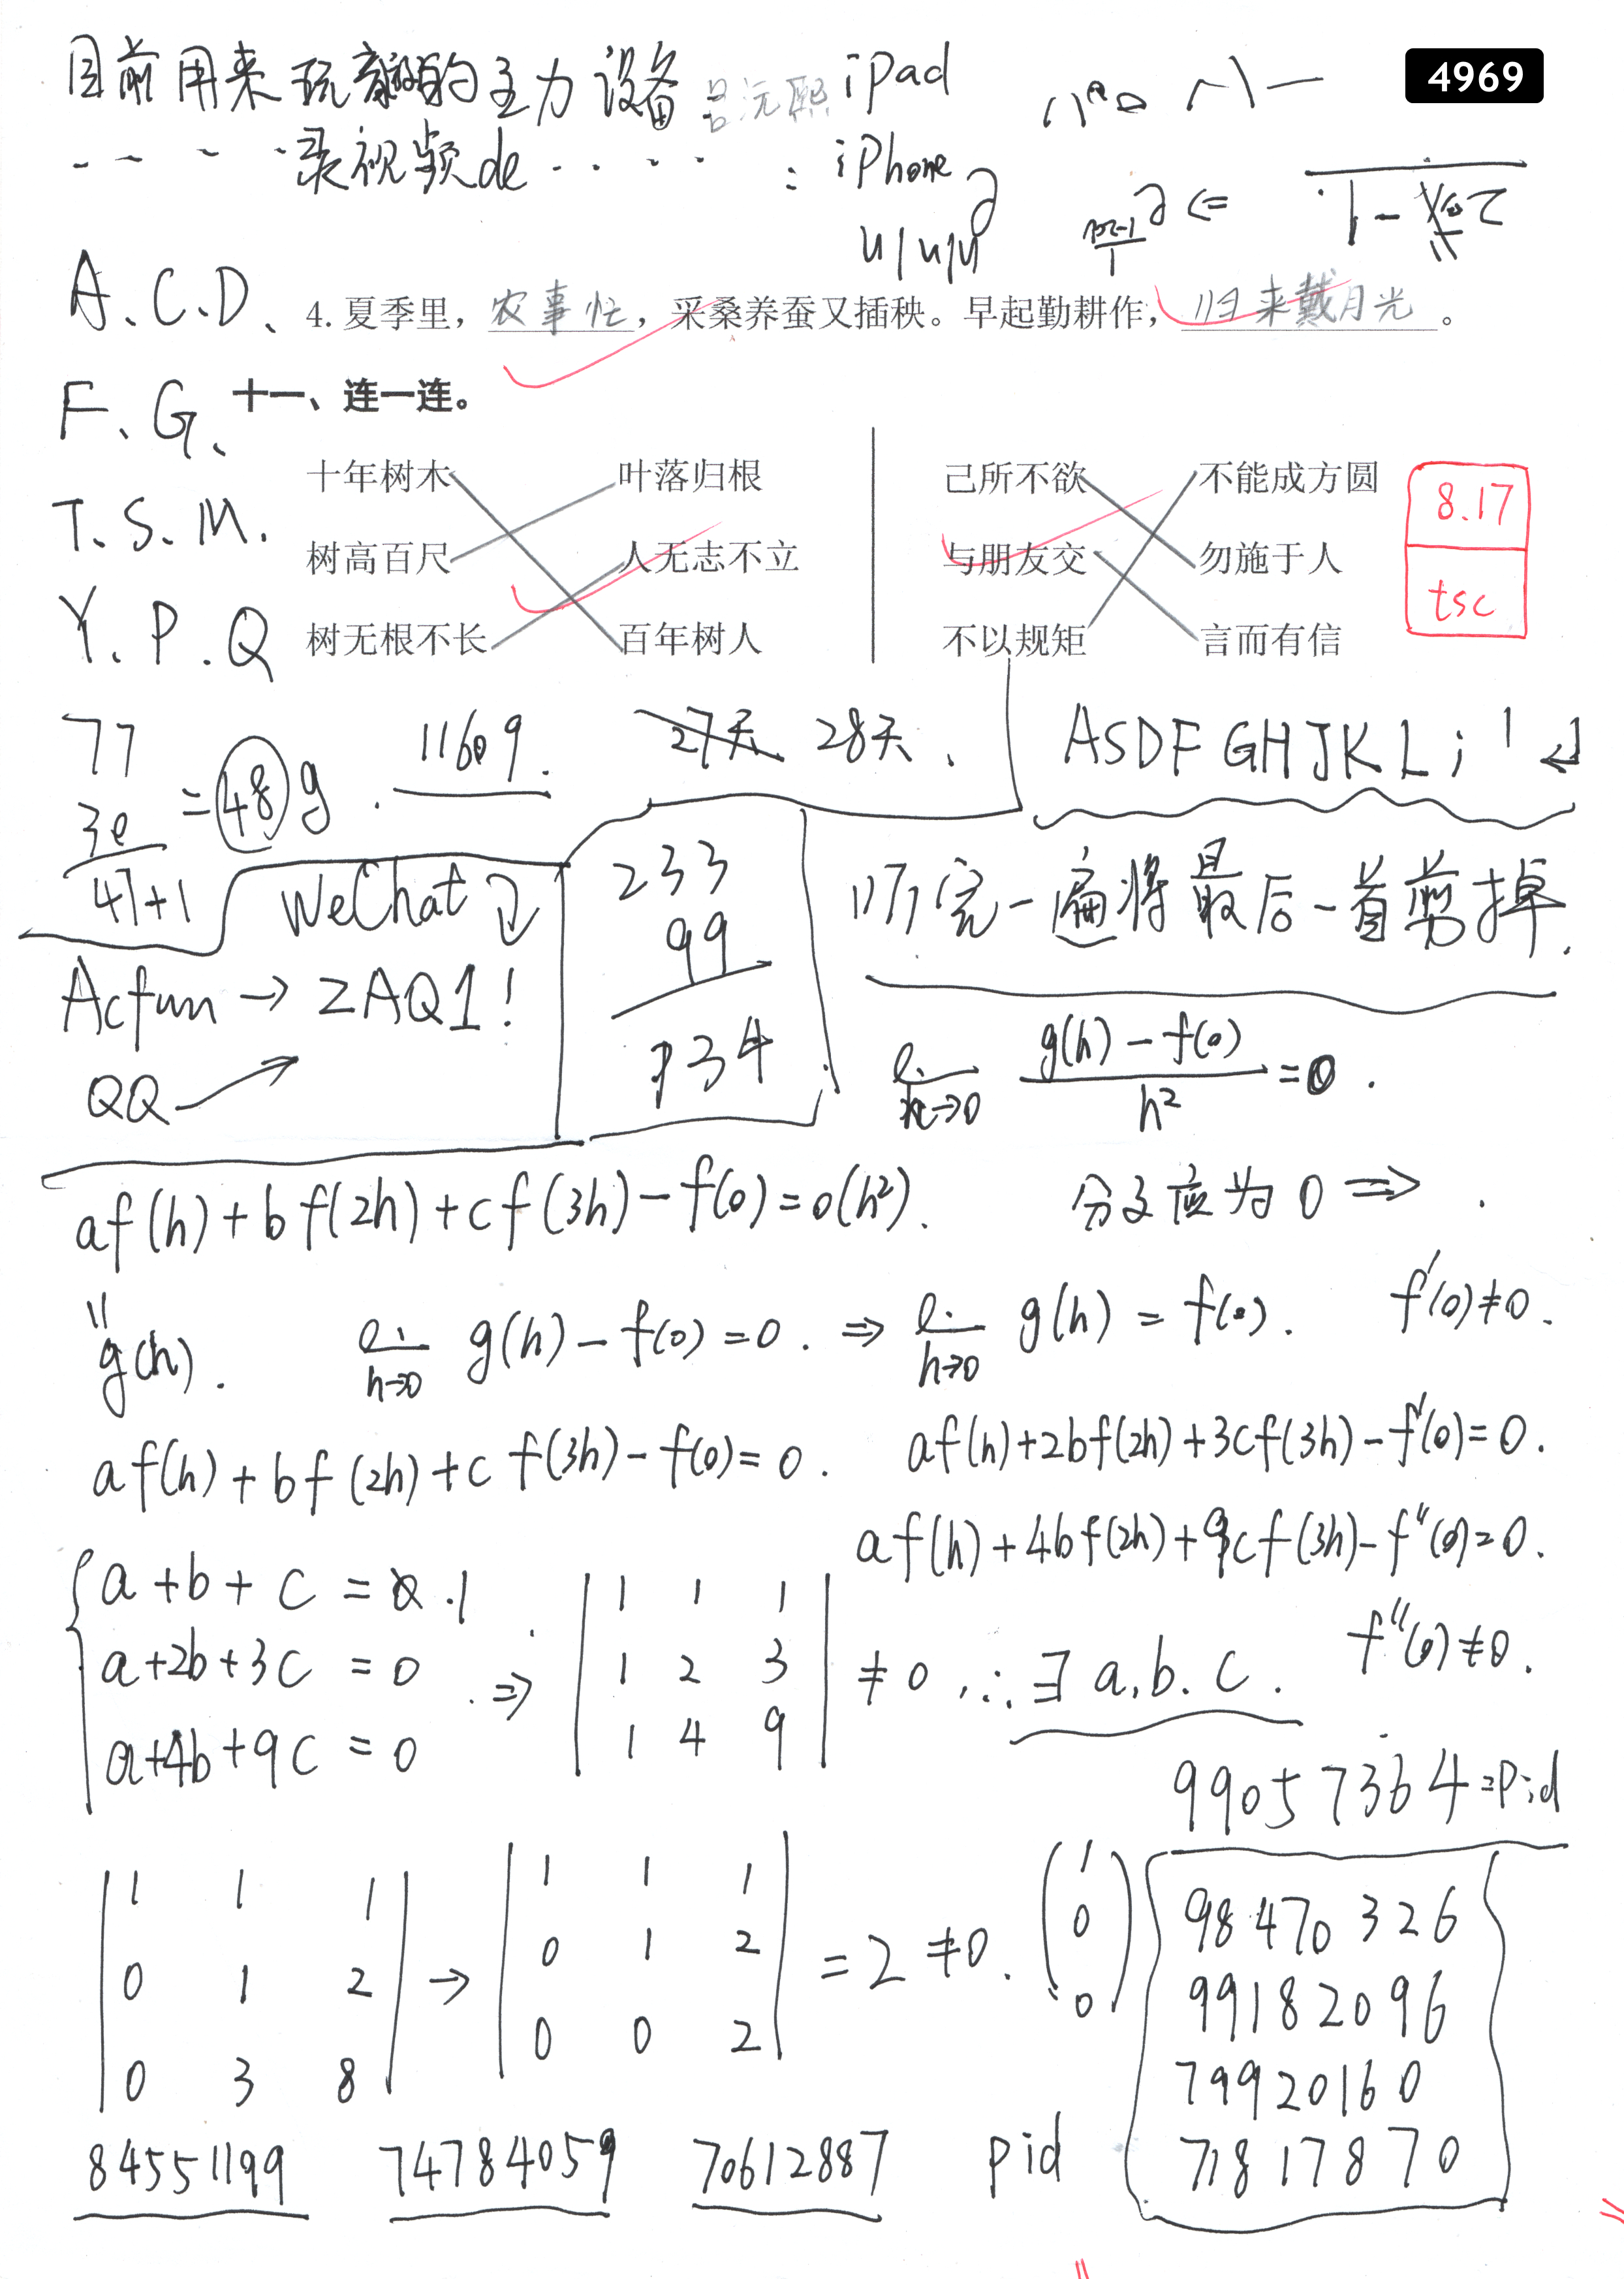 4969
目前用来玩音游的主力设备:吕沅熙 iPad
录视频de : iPhone
A、C、D、
4. 夏季里，农事忙，采桑养蚕又插秧。早起勤耕作，归来戴月光。
F、G、
十一、连一连。
T.S.M.
Y.P.Q
十年树木 叶落归根 己所不欲 不能成方圆
树高百尺 人无志不立 与朋友交 勿施于人
树无根不长 百年树人 不以规矩 言而有信
8.17
tsc
77
= 48 g.
47+1
27天 28天.
ASDFGHJKL; ' ↲
WeChat
233
99
134
听完一遍将最后一首剪掉.
Acfun → ZAQ1!
QQ
(g(h)-f(0))/h² = 0.
af(h)+bf(2h)+cf(3h)-f(0)=o(h²).
分子应为0 ⇒ .
g(h).
h→0 g(h)-f(0)=0. ⇒ h→0 g(h)=f(0). f'(0)≠0.
af(h)+bf(2h)+cf(3h)-f(0)=0. af(h)+2bf(2h)+3cf(3h)-f'(0)=0.
af(h)+4bf(2h)+9cf(3h)-f''(0)=0.
a+b+c=1
a+2b+3c=0
a+4b+9c=0
⇒
1 1 1
1 2 3
1 4 9
≠0, ∴∃ a.b.c. f''(0)≠0.
99057364=pid
1 1 1
0 1 2
0 3 8
→
1 1 1
0 1 2
0 0 2
=2≠0.
1
0
0
98470326
99182096
79920160
71817870
84551199 74784059 70612887 pid